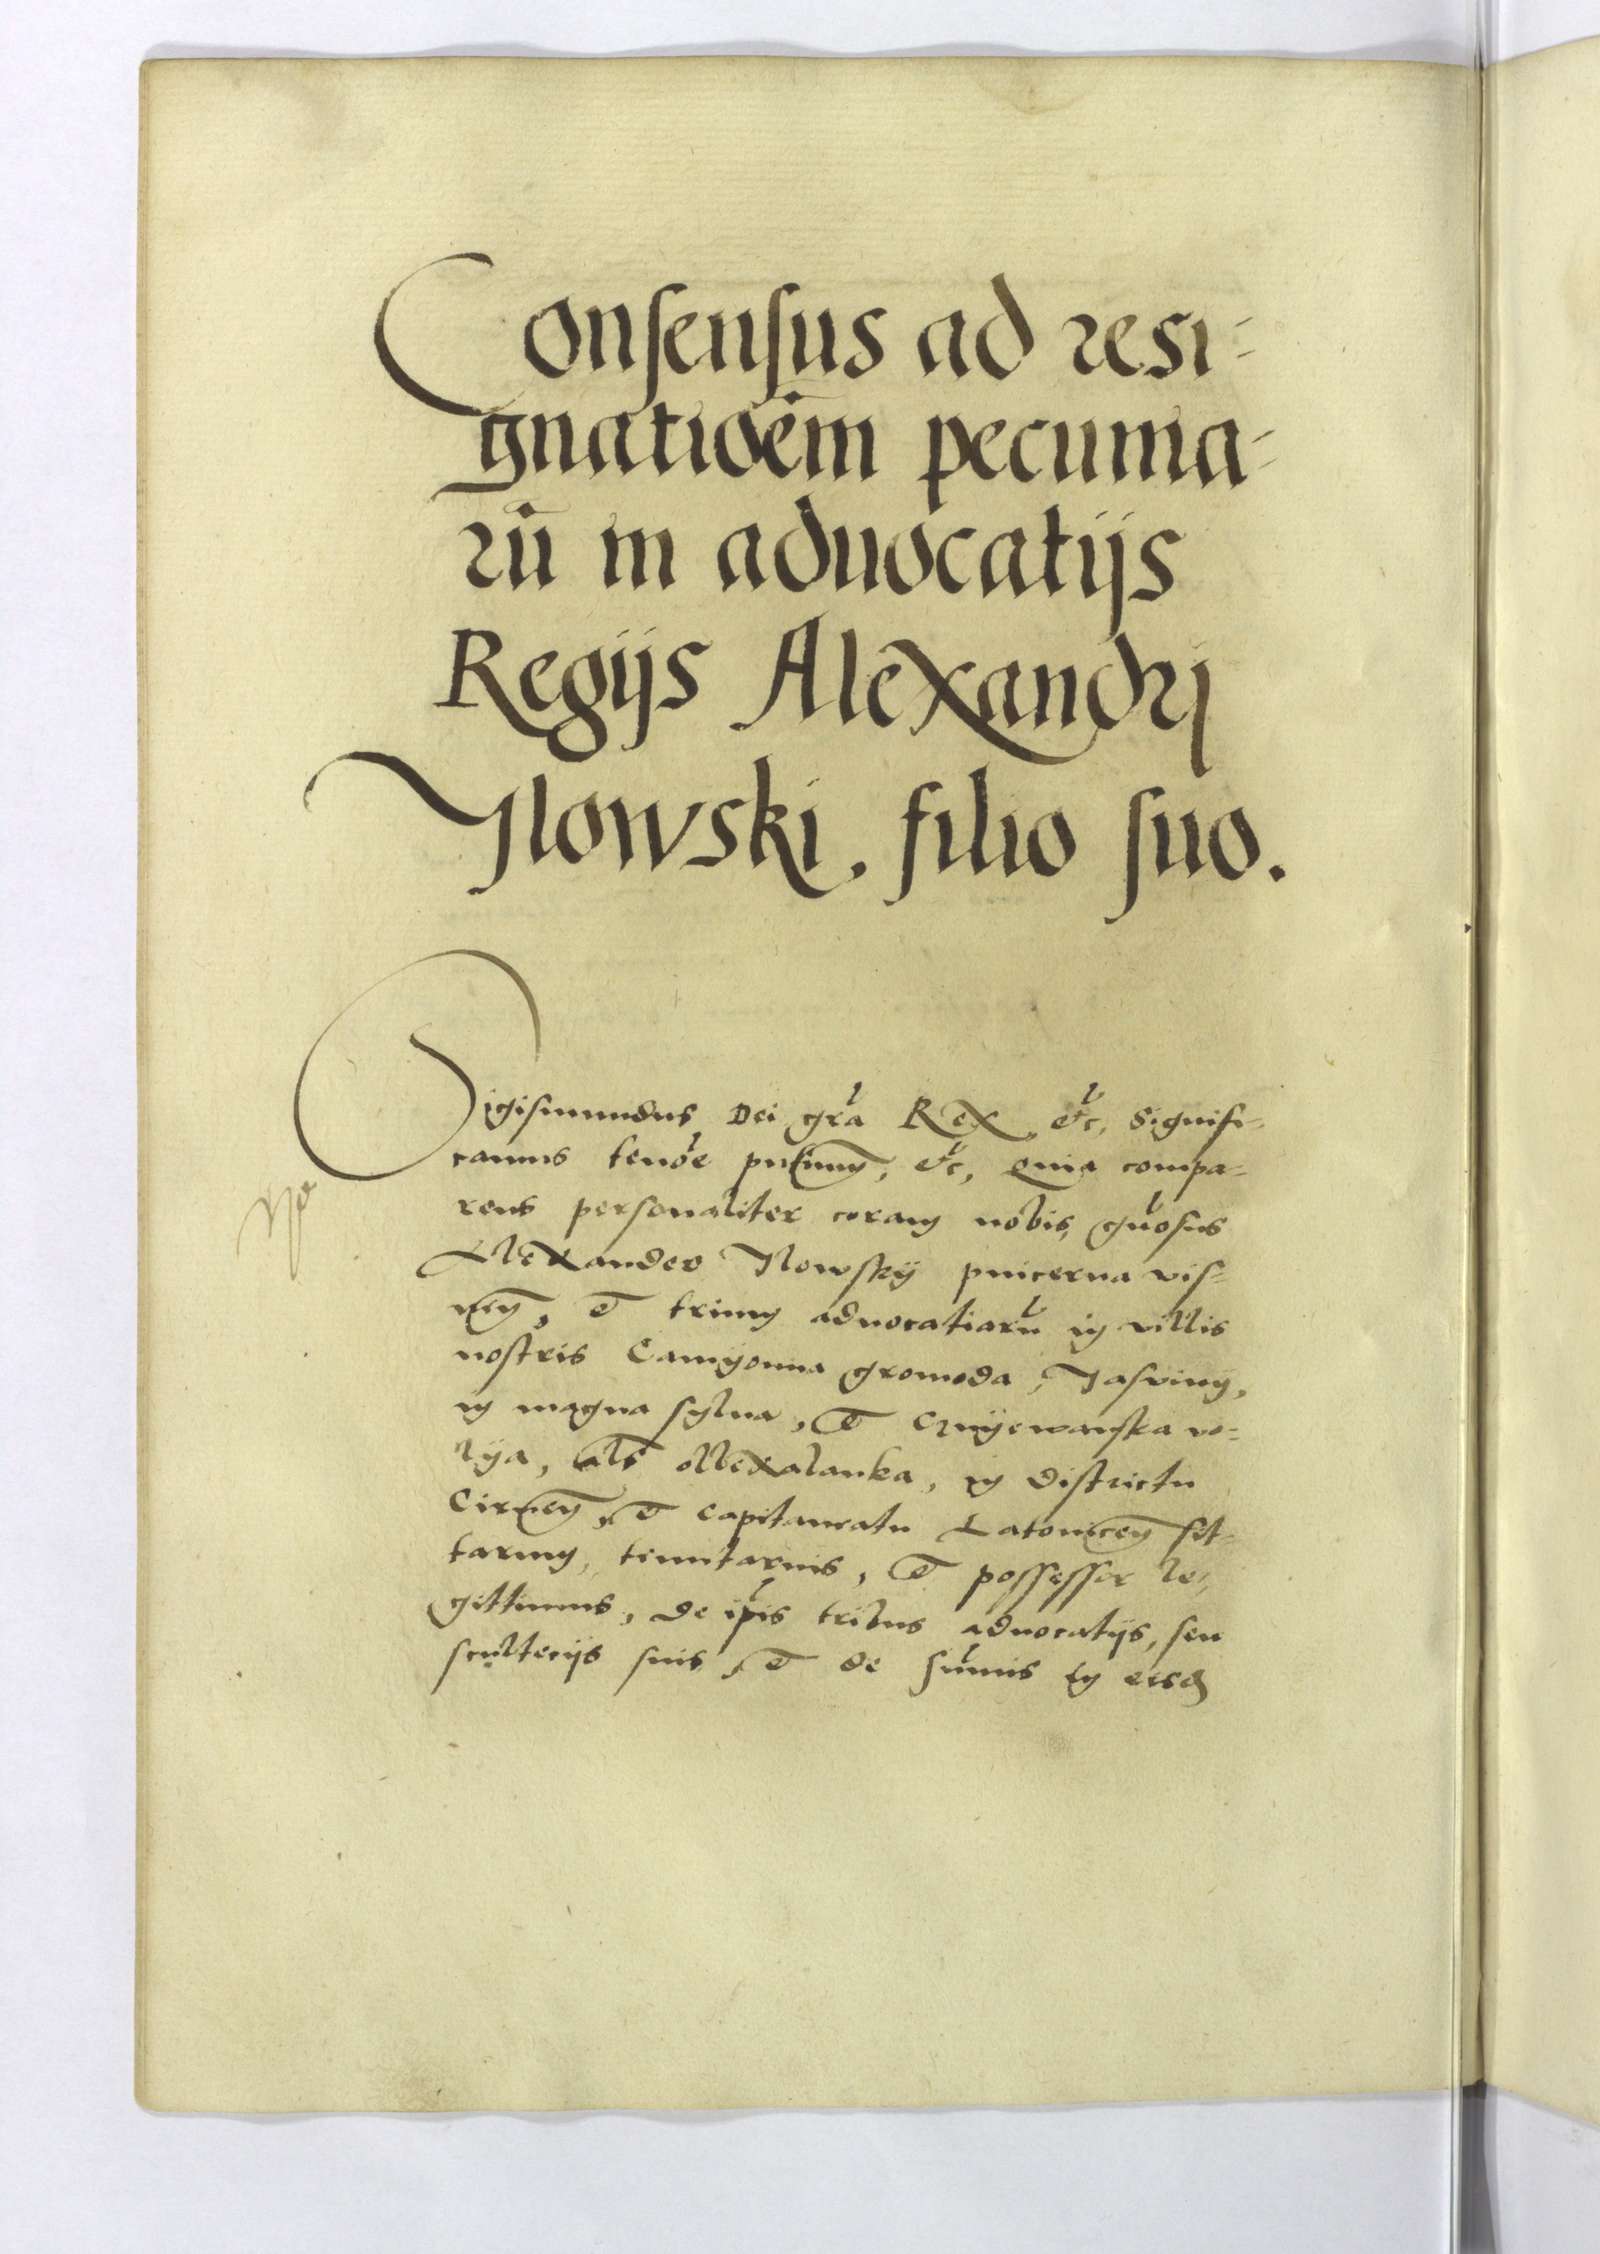 Consensus ad resi-
gnatioēm pecunia-
rū in aduocatijs
Regijs Alexandrj
Ylowski, filio suo.
Sigismundus Dei gra Rex, etc, Signifi-
camus tenore pntium, etc, Quia compa-
rens personaliter coram nobis, gnosus
Alexander Ilowskÿ pincerna vis-
nen, et trium aduocatiarū in villis
nostris Camÿonna gromoda, Jasviny,
in magna sylua, et Cznÿewanska vo-
lÿa, als ollexalanka, in districtu
Cirnen, et Capitaneatu Latovicen
tarum, tenutarius, et possessor le-
gittimus, de ipis tribus aduocatijs, seu
scultecijs suis, et de summis in eisd